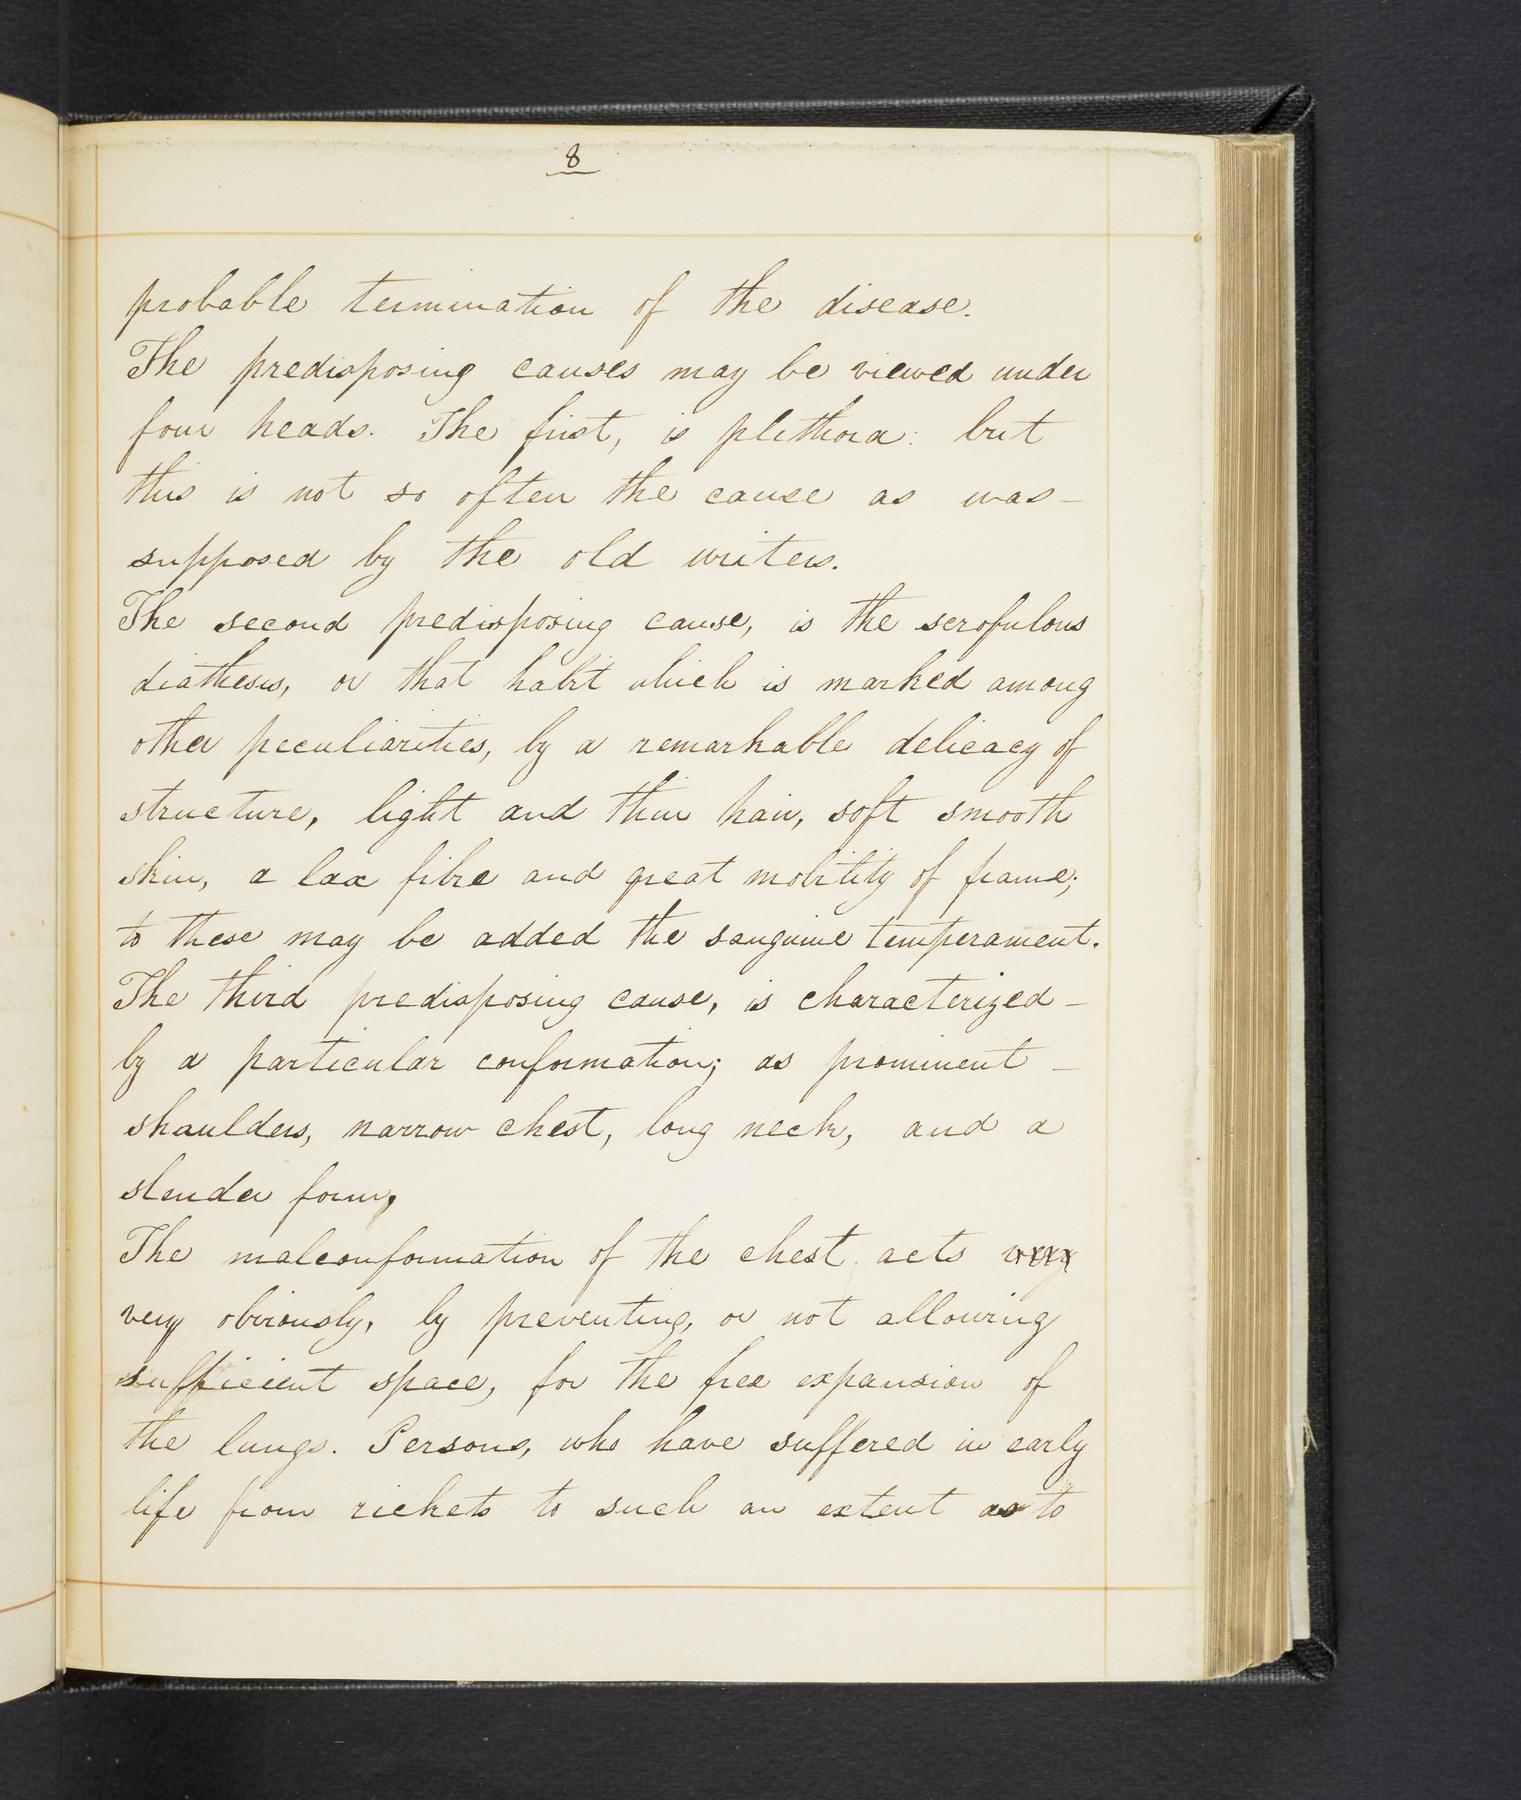 8
probable termination of the disease.
The predisposing causes may be viewed under
four heads. The first, is plethora: but
this is not so often the cause as was-
supposed by the old writers.
The second predisposing cause, is the scrofulous
diathesis, or that habit which is marked among
other peculiarities, by a remarkable delicacy of
structure, light and thin hair, soft smooth
skin, a lax fibre and great mobility of frame;
to these may be added the sanguine temperament.
The third predisposing cause, is characterized-
by a particular conformation; as prominent -
shoulders, narrow chest, long neck, and a
slender form,
The malconformation of the chest acts very
very obviously, by preventing, or not allowing
sufficient space, for the free expansion of
the lungs. Persons, who have suffered in early
life from rickets to such an extent as to